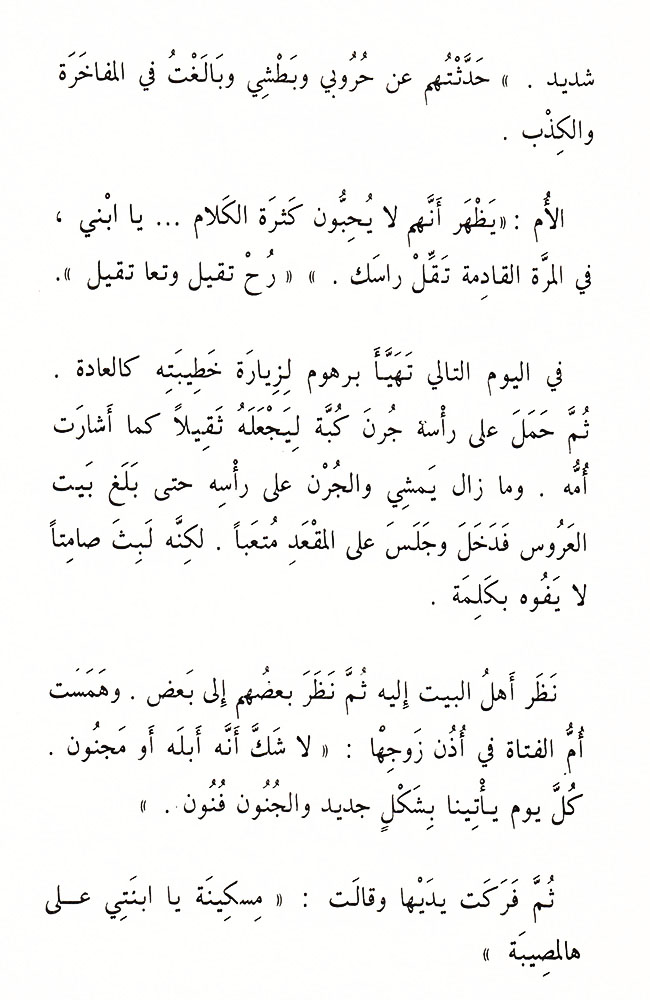 شديد . » حَدَّثْتُهم عن حُرُوبي وبَطْشِي وبَالَغْتُ في المفاخَرَة
والكِذْب .
الأُم : «يَظْهَر أَنَّهم لا يُحِبُّون كَثرَة الكَلام ... يا ابْني ،
في المرَّة القادِمة تَقِّلْ راسَك . » « رُحْ تقيل وتعا تقيل ».
في اليوم التالي تَهَيَّأَ برهوم لِزِيارَة خَطِيبَتِه كالعادة .
ثُمَّ حَمَلَ على رأْسة جُرنَ كُبَّة لِيَجْعَلَهُ ثَقِيلاً كما أَشارَت
أُمُّه . وما زال يَمشِي والجُرْن على رأْسِه حتى بَلَغ بَيت
العَرُوس فَدَخَلَ وجَلَسَ على المقْعَدِ مُتعَباً . لكِنَّه لَبِثَ صامِتاً
لا يَفُوه بكَلِمَة .
نَظَر أَهلُ البيت إِليه ثُمَّ نَظَرَ بعضُهم إِلى بَعض . وهَمَسَت
أُمُّ الفتاة في أُذُن زَوجِهْا : « لا شَكَّ أَنَّه أَبلَه أَو مَجنُون .
كُلَّ يوم يأْتِينا بِشَكْلٍ جديد والجُنُون فُنُون . »
ثُمَّ فَرَكَت يدَيْها وقالَت : « مِسكِينَة يا ابنَتِي عـلى
هالمصِيبَة »